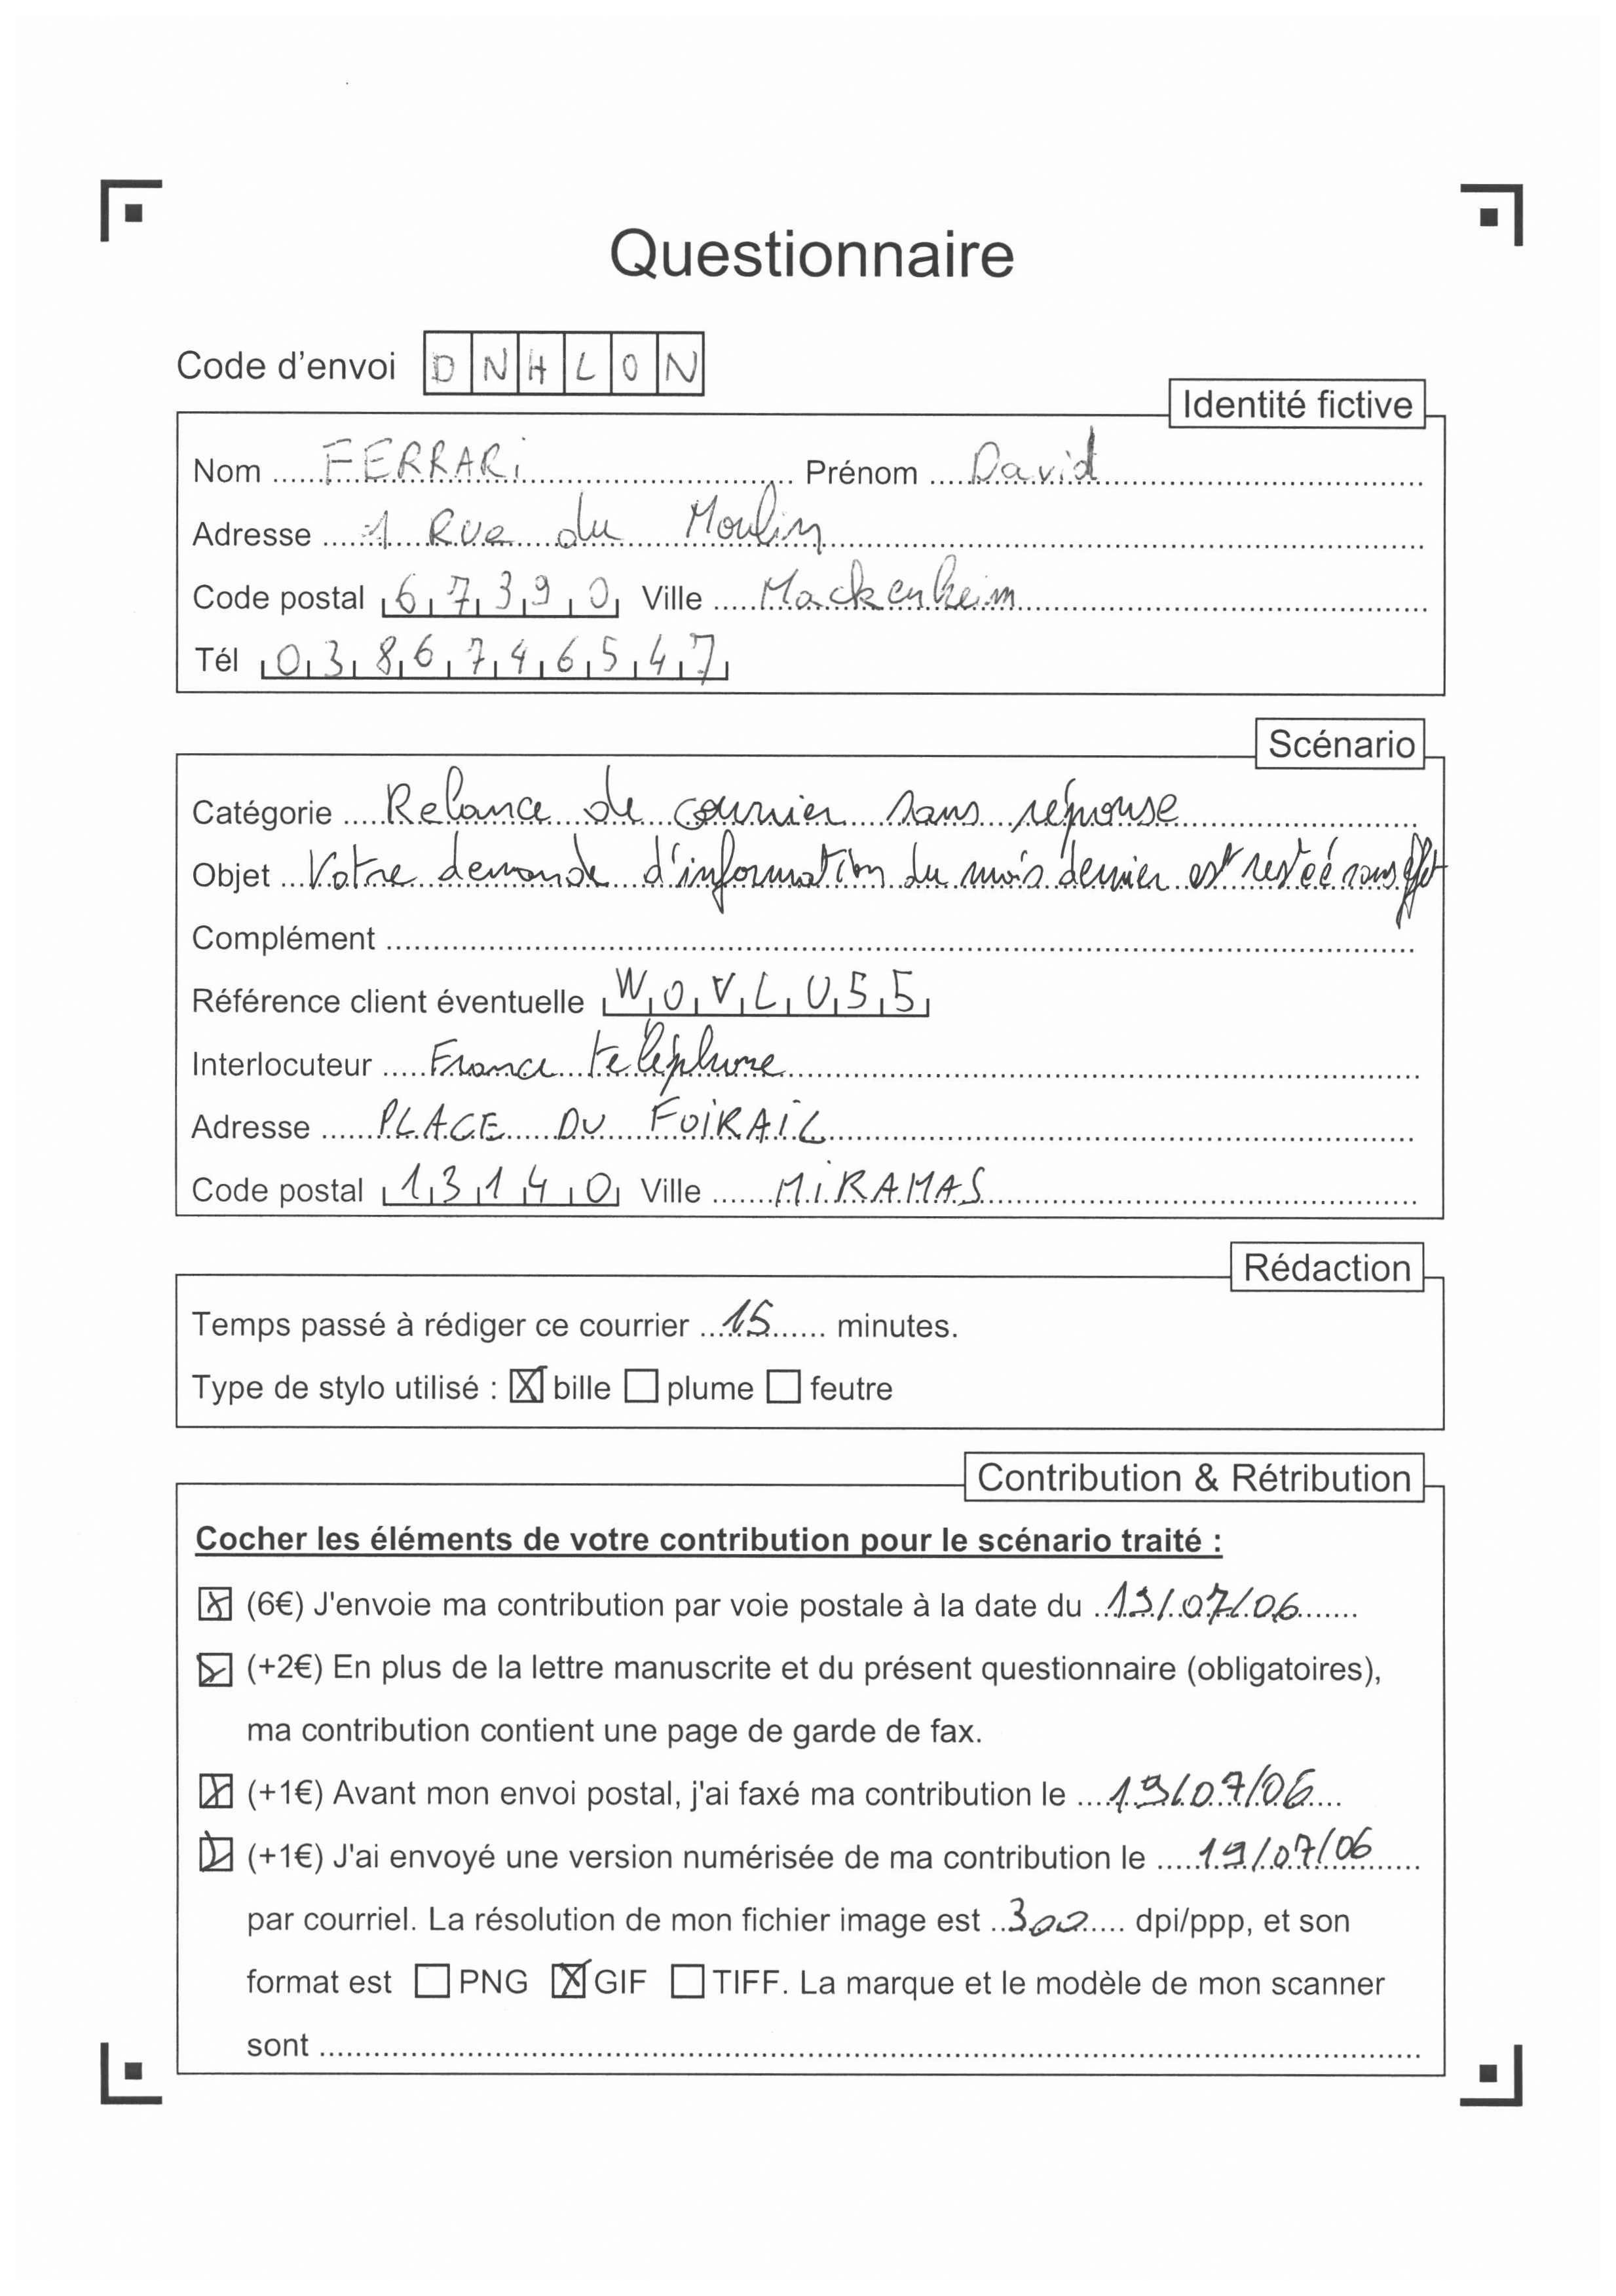 Questionnaire
Code d'envoi D N H L O N
Identité fictive
Nom FERRARi Prénom David
Adresse 1 Rue du Moulin
Code postal 67390 Ville Mackenheim
Tél 0386746547
Scénario
Catégorie Relance de courrier sans réponse
Objet Votre demande d'information du mois dernier est restéé sans effet
Complément
Référence client éventuelle WOVLU55
Interlocuteur France téléphone
Adresse PLACE DU FOiRAiL
Code postal 13140 Ville MiRAMAS
Rédaction
Temps passé à rédiger ce courrier 15 minutes.
Type de stylo utilisé : bille plume feutre
Contribution & Rétribution
Cocher les éléments de votre contribution pour le scénario traité :
(6€) J'envoie ma contribution par voie postale à la date du 19/07/06
(+2€) En plus de la lettre manuscrite et du présent questionnaire (obligatoires),
ma contribution contient une page de garde de fax.
(+1€) Avant mon envoi postal, j'ai faxé ma contribution le 19/07/06
(+1€) J'ai envoyé une version numérisée de ma contribution le 19/07/06
par courriel. La résolution de mon fichier image est 300 dpi/ppp, et son
format est PNG GIF TIFF. La marque et le modèle de mon scanner
sont